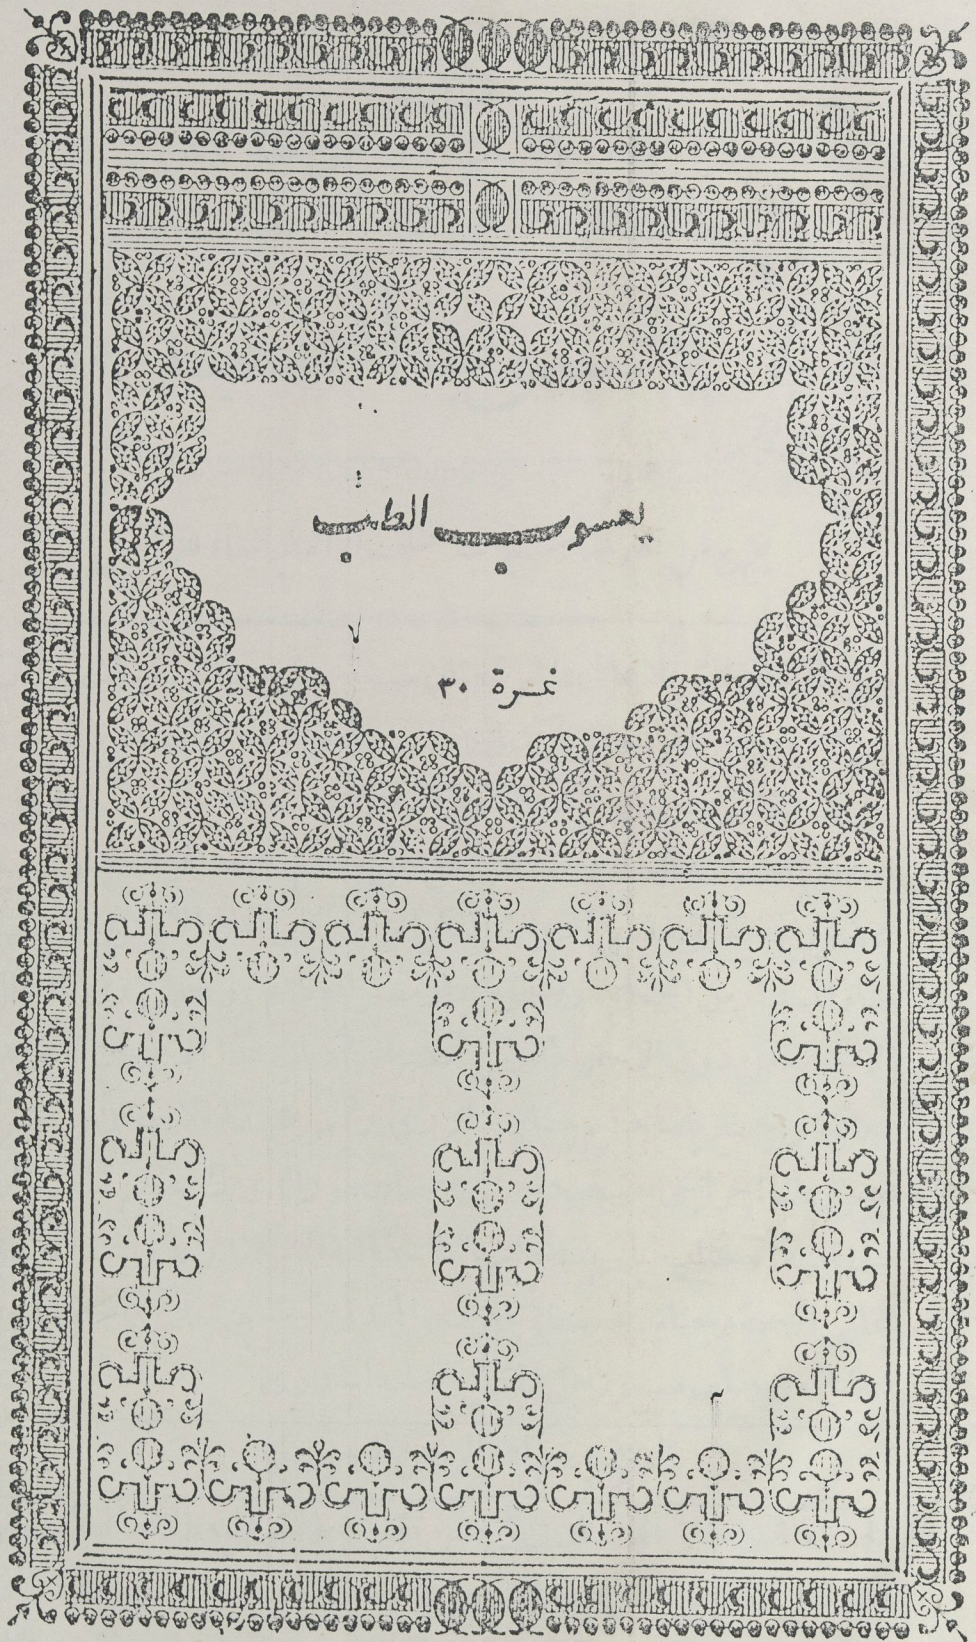 يعسوب الطب
نمرة ٣٠